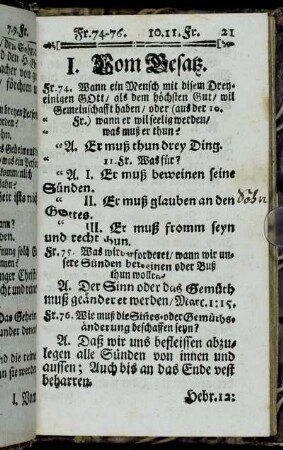 7.9. Fr.
Fr. 74-76. 10. 11. Fr. 21
I. Vom Gesatz.
Fr. 74. Wann ein Mensch mit disem Drey-
einigen GOtt / als dem höchsten Gut / wil
Gemeinschafft haben / oder (aus der 10.
"Fr.) wann er wil seelig werden /
was muß er thun?
"A. Er muß thun drey Ding.
11. Fr. Was für?
"A. I. Er muß beweinen seine
Sünden.
" II. Er muß glauben an den Sohn
GOttes.
" III. Er muß fromm seyn
und recht thun.
Fr. 75. Was wird erfordert / wann wir un-
sere Sünden beweinen oder Buß
thun wollen?
A. Der Sinn oder das Gemüth
muß geändert werden / Marc. 1: 15.
Fr. 76. Wie muß die Sinnes- oder Gemüths-
änderung beschaffen seyn?
A. Daß wir uns befleissen abzu-
legen alle Sünden von innen und
aussen; Auch bis an das Ende vest
beharren.
Hebr. 12: